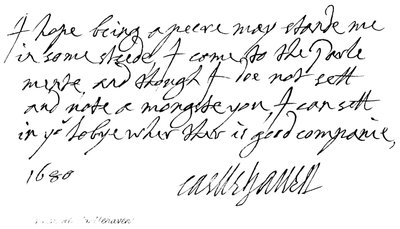 I hope being a peere may stande me
in some steede, I come to the Parle
mente, and though I doe not sett
and note a mongste you, I can sett
in yᵉ lobye wher ther is good companie,
1680 Castlehaven